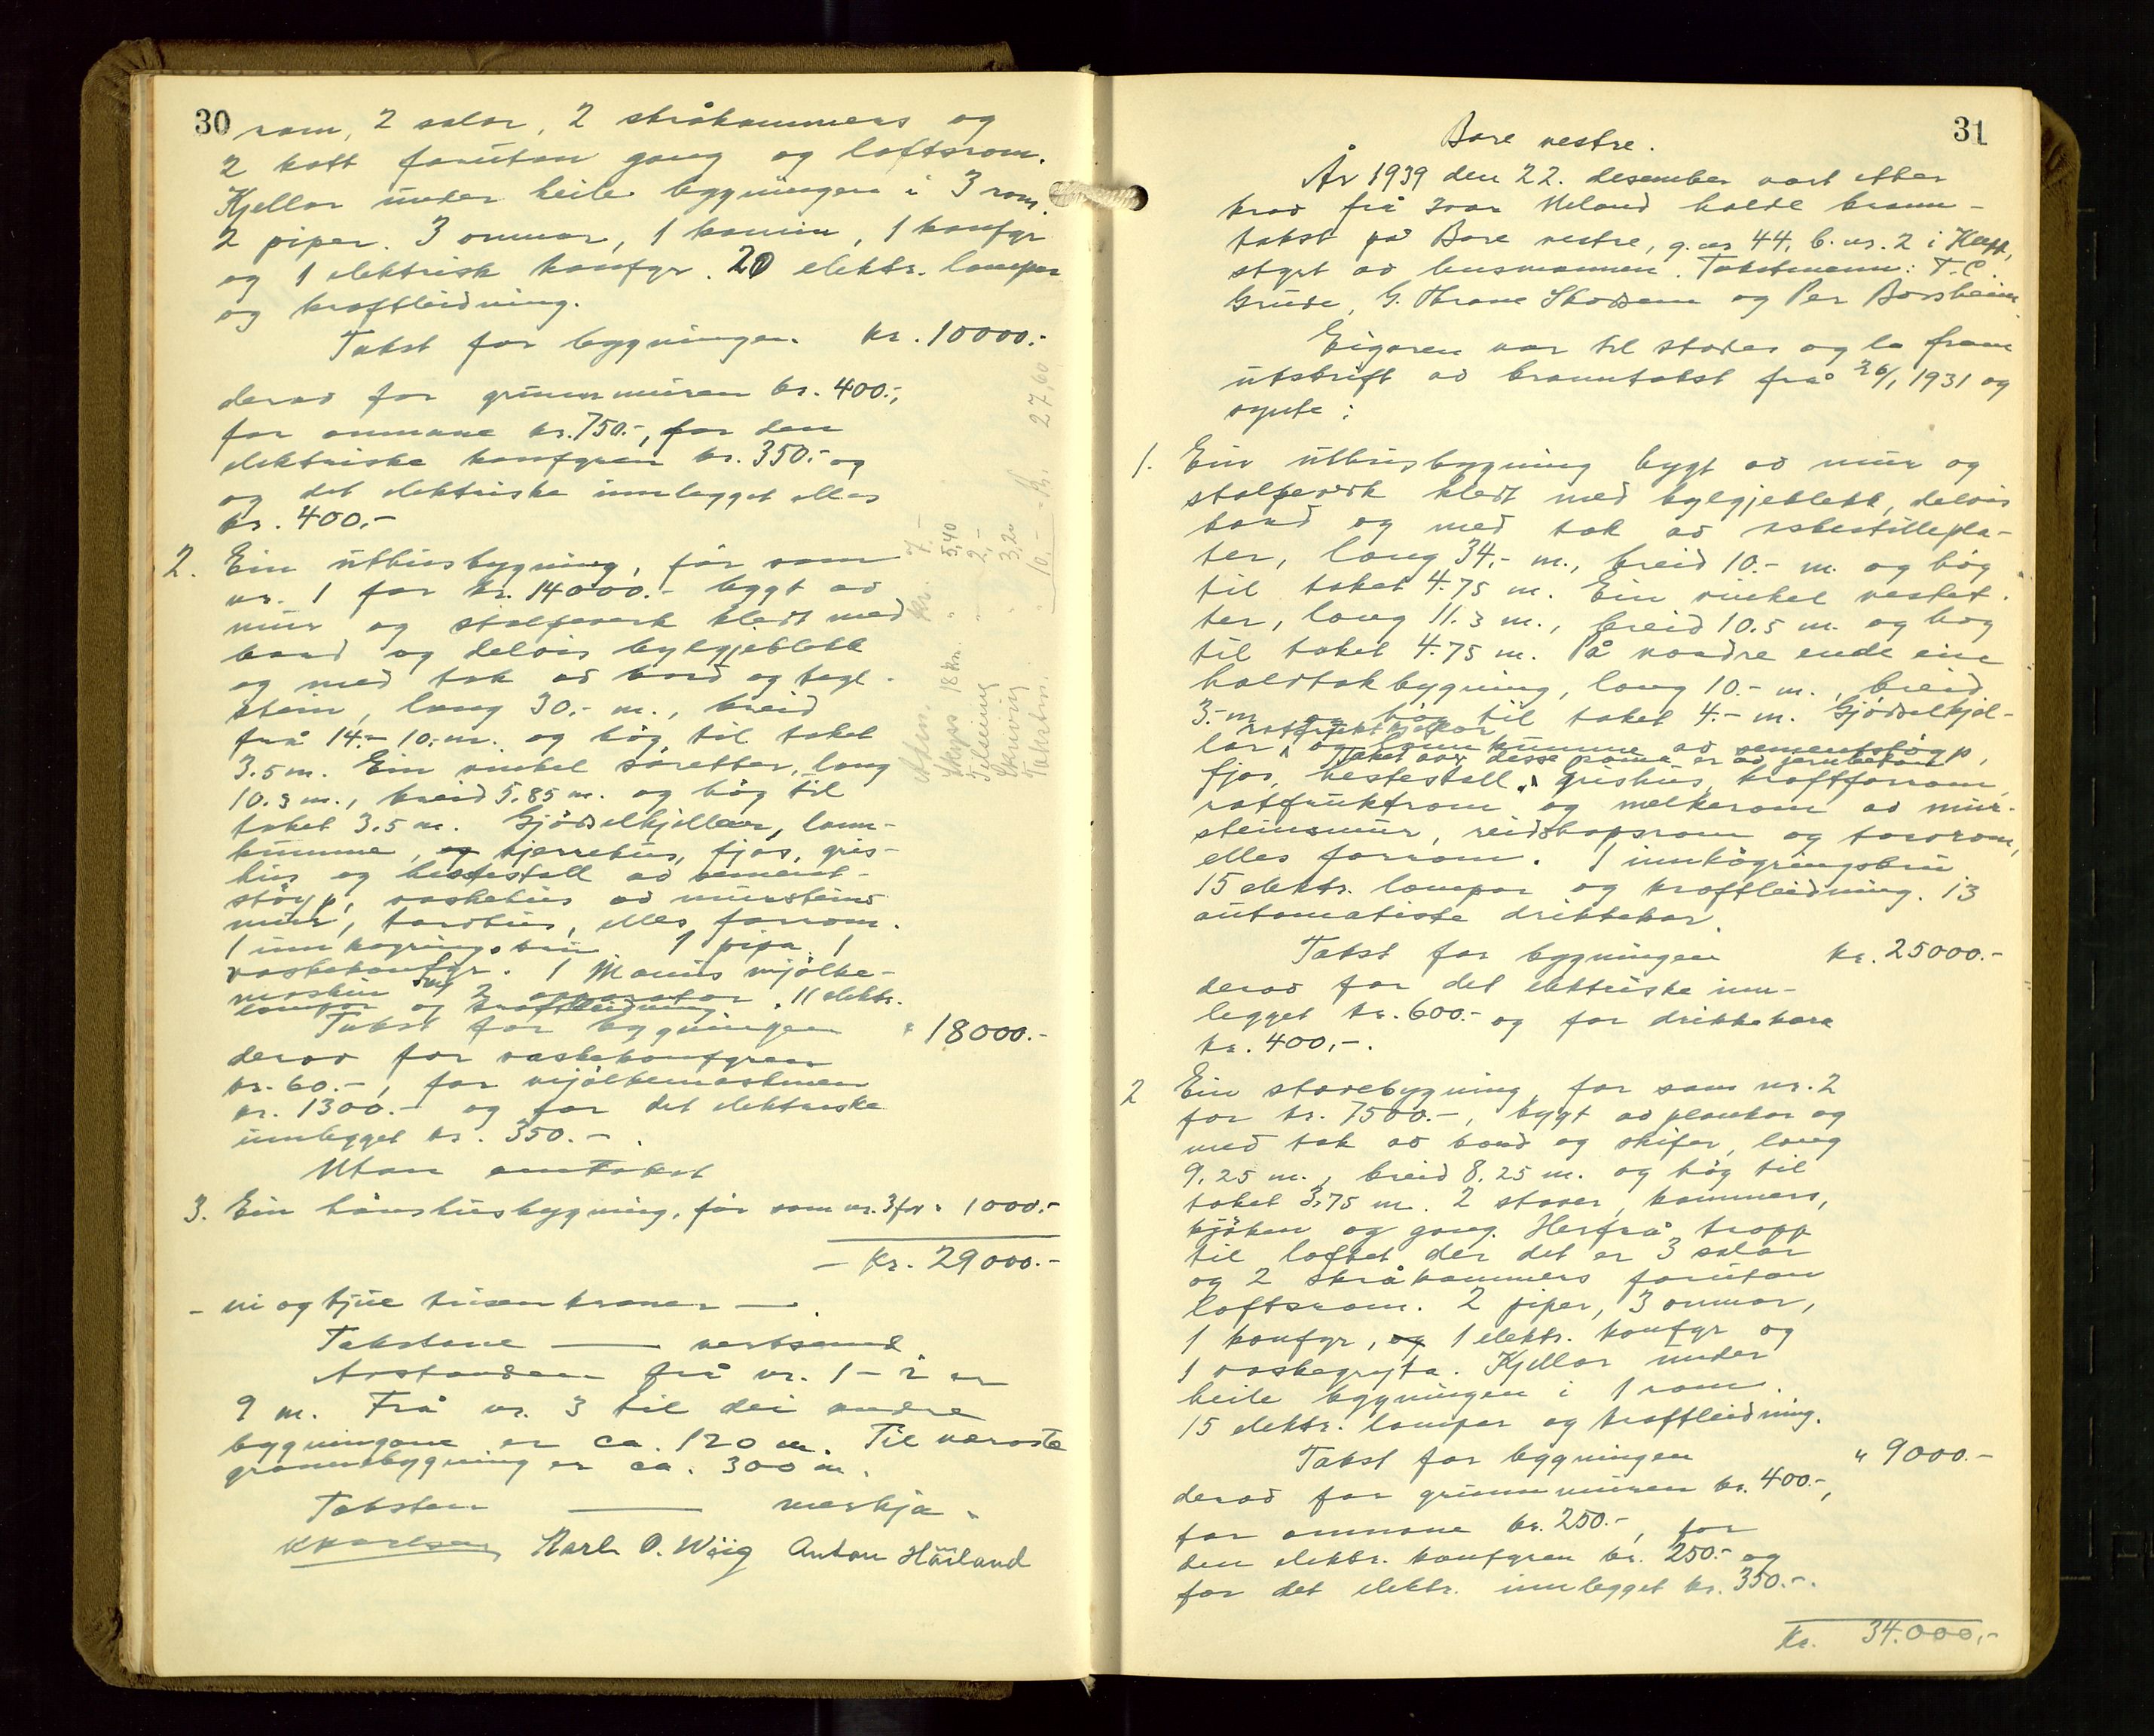 30
rom, 2 salar, 2 skråkammers og
2 kott foruten gang og loftsrom.
Kjellar under heile bygningen i 3 rom.
2 piper. 3 omnar, 1 kamin, 1 komfyr
og 1 elektrisk komfyr. 20 elektr. lampar
og kraftleidning.
Takst for bygningen. kr. 10000.-
derav for grunnmuren kr. 400.-,
for omnane kr. 750.-, for den
elektriske komfyren kr. 350.- og
og det elektriske innlegget elles
kr. 400.-
2. Ein uthusbygning, før som
nr. 1 for kr. 14000.- bygt av
mur og stolpeverk kledt med
bord og delvis bylgjeblekk
og med tak av bord og tegl-
stein, lang 30.- m., breid
frå 14.- 10.- m. og høg til taket
3.5 m. Ein vinkel søretter, lang
10.3 m., breid 5.85 m. og høg til
taket 3.5 m. Gjødselkjellar, lann-
kumme, og kjerrehus, fjøs, gris-
hus og hestestall av sement-
støyp, vaskehus av mursteins
mur, torvhus, elles forrom.
1 innkøgringsbru 1 pipa. 1
vaskekomfyr. 1 Manus mjølke-
maskin med 2 apparatar. 11 elektr.
lampar og kraftleidning
Takst for bygningen " 18000.-
derav for vaskekomfyren
kr. 60.-, for mjølkemaskinen
kr. 1300.- og for det elektriske
innlegget kr. 350.-.
Utan omtakst
3. Ein hønshusbygning, før som nr. 3 for " 1000.-
- Kr. 29000.-
- ni og tjue tusen kroner - .
Takstane — vertsemd
Avstanden frå nr. 1 - 2 er
9 m. Frå nr. 3 til dei andre
bygningane er ca. 120 m. Til næraste
grannebygning er ca. 300 m.
Taksten — merkja.
K Karlsen Karl O. Wiig Anton Håland
Avn. kr. 7.-
Skyss 18 km. " 5,40
Teleining " 2,-
Skriving " 3,20
Takstm. " 10.- - Kr. 27,60
31
Bore vestre.
År 1939 den 22. desember vart etter
krav frå Ivar Meland halde brann-
takst på Bore vestre, g. nr 44, b. nr. 2 i Klepp,
styrt av lensmannen. Takstmenn: T. C.
Grude, G. Thrane Skadsem og Per Borsheim.
Eigaren var til stades og la fram
utskrift av branntakst frå 26/1 1931 og
synte:
1. Ein uthusbygning bygt av mur og
stolpeverk kledt med bylgjeblekk, delvis
bord og med tak av asbestillepla-
ter, lang 34,- m., breid 10.- m. og høg
til taket 4.75 m. Ein vinkel vestet-
ter, lang 11.3 m., breid 10.5 m. og høg
til taket 4.75 m. På nordre ende ein
halvtakbygning, lang 10.- m., breid
3.- m og høg til taket 4.- m. Gjødselkjel-
rotfruktkjellar
lar og lannkumme av sementstøyp,
Taket over desse romma er av jernbetong
fjøs, hestestall, grishus, kraftforrom,
rotfruktrom og melkerom av mur-
steinsmur, reidskapsrom og torvrom,
elles forrom. 1 innkøgringsbru
15 elektr. lampar og kraftleidning. 13
automatiske drikkekar.
Takst for bygningen kr. 25000.-
derav for det elektriske inn-
legget kr. 600.- og for drikkekara
kr. 400,-.
2 Ein stovebygning, før som nr. 2
for kr. 7500.-, bygt av plankar og
med tak av bord og skifer, lang
9.25 m., breid 8.25 m. og høg til
taket 3.75 m. 2 stover, kammers,
kjøken og gang. Herfrå trapp
til loftet der det er 3 salar
og 2 skråkammers foruten
loftsrom. 2 piper, 3 omnar,
1 komfyr, og 1 elektr. komfyr og
1 vaskegryta. Kjellar under
heile bygningen i 1 rom.
15 elektr. lampar og kraftleidning.
Takst for bygningen " 9000.-
derav for grunnmuren kr. 400.-,
for omnane kr. 250.-, for
den elektr. komfyren kr. 250.- og
for det elektr. innlegget kr. 350.-.
Kr. 34.000,-